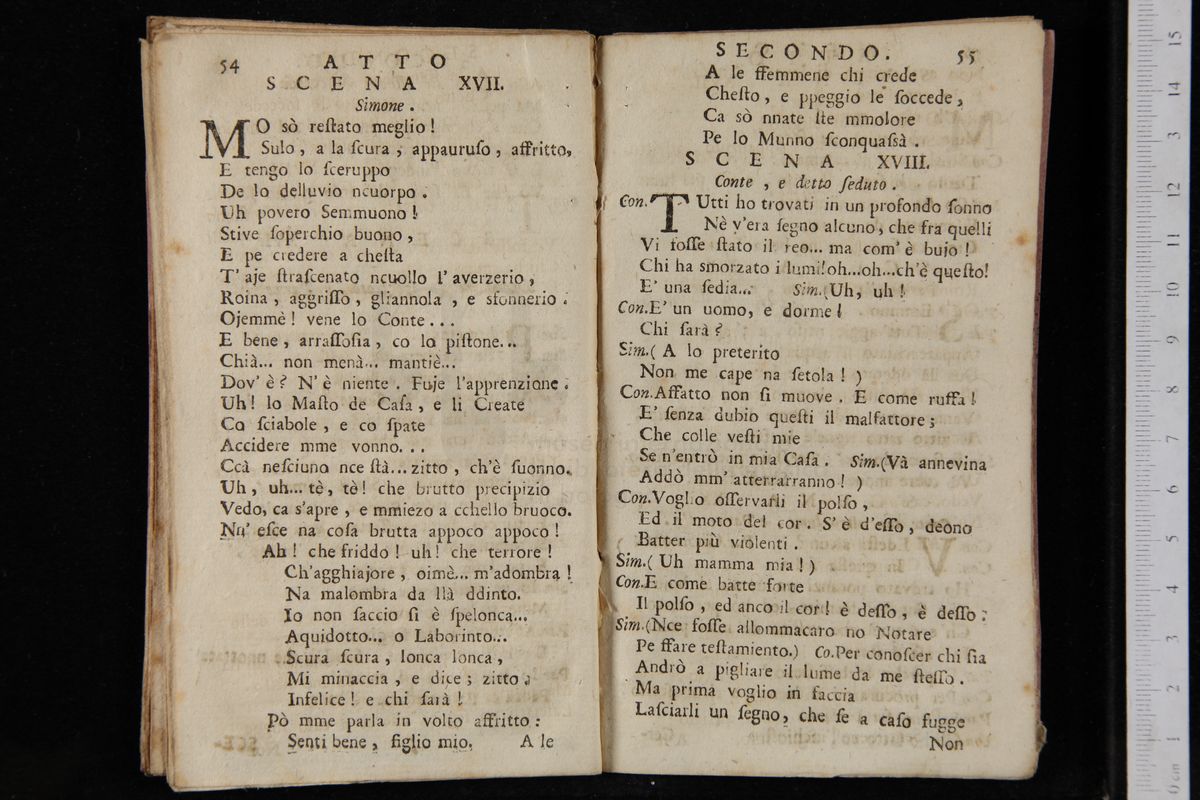 54 ATTO
SCENA XVII.
Simone.
MO sò reſtato meglio!
Sulo, a la ſcura, appauruſo, affritto,
E tengo lo ſceruppo
De lo delluvio ncuorpo.
Uh povero Semmuono!
Stive ſoperchio buono,
E pe credere a cheſta
T'aje ſtraſcenato ncuollo l'averzerio,
Roina, aggriſſo, gliannola, e sfonnerio.
Ojemmè! vene lo Conte...
E bene, arraſſoſia, co lo piſtone...
Chià... non menà... mantiè...
Dov'è? N'è niente. Fuje l'apprenzione.
Uh! lo Maſto de Caſa, e li Create
Co ſciabole, e co ſpate
Accidere mme vonno...
Ccà neſciuno nce ſtà... zitto, ch'è ſuonno.
Uh, uh... tè, tè! che brutto precipizio
Vedo, ca s'apre, e mmiezo a cchello bruoco.
Nn'eſce na coſa brutta appoco appoco!
Ah! che friddo! uh! che terrore!
Ch'agghiajore, oimè... m'adombra!
Na malombra da llà ddinto.
Io non ſaccio ſi è ſpelonca...
Aquidotto... o Laborinto...
Scura ſcura, lonca lonca,
Mi minaccia, e dice; zitto.
Infelice! e chi ſarà!
Pò mme parla in volto affritto:
Senti bene, figlio mio,
A le
SECONDO. 55
A le ffemmene chi crede
Cheſto, e ppeggio le ſoccede,
Ca sò nnate ſte mmolore
Pe lo Munno ſconquaſsà.
SCENA XVIII.
Conte, e detto ſeduto.
Con. TUtti ho trovati in un profondo ſonno
Nè v'era ſegno alcuno, che fra quelli
Vi foſſe ſtato il reo... ma com'è bujo!
Chi ha smorzato i lumi! oh... oh... ch'è queſto!
E' una ſedia... Sim. (Uh, uh!
Con. E' un uomo, e dorme!
Chi ſarà?
Sim. (A lo preterito
Non me cape na ſetola!)
Con. Affatto non ſi muove. E come ruffa!
E' ſenza dubio queſti il malfattore;
Che colle veſti mie
Se n'entrò in mia Caſa. Sim. (Và annevina
Addò mm'atterrarranno!)
Con. Voglio oſſervarli il polſo,
Ed il moto del cor. S'è d'eſſo, deono
Batter più violenti.
Sim. (Uh mamma mia!)
Con. E come batte forte
Il polſo, ed anco il cor! è deſſo, è deſſo:
Sim. (Nce foſſe allommacaro no Notare
Pe ffare teſtamiento.) Co. Per conoſcer chi ſia
Andrò a pigliare il lume da me ſteſſo.
Ma prima voglio in faccia
Laſciarli un ſegno, che ſe a caſo fugge
Non